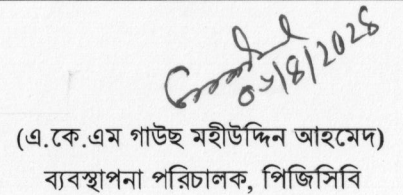 (এ.কে.এম গাউছ মহীউদ্দিন আহমেদ)
ব্যবস্থাপনা পরিচালক, পিজিসিবি